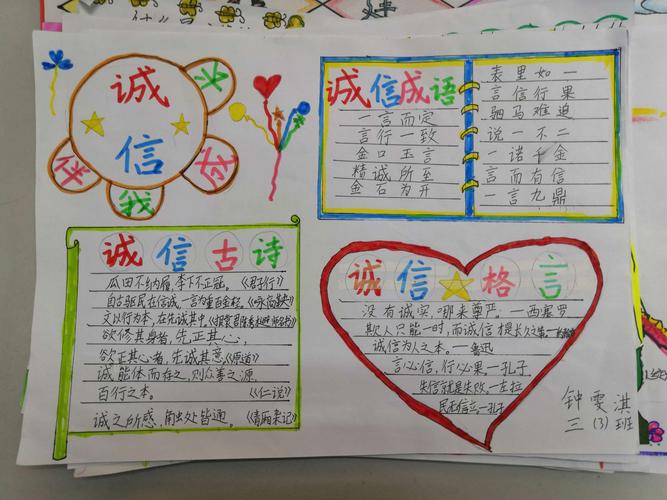 诚信
伴我成长
诚信成语
一言而定
言行一致
金口玉言
精诚所至
金石为开
表里如一
言信行果
驷马难追
说一不二
诺千金
言而有信
一言九鼎
诚信古诗
瓜田不纳履,李下不正冠。《君子行》
自古驱民在信诚,一言为重百金轻。
文以行为本,在先诚其中。
欲修其身者,先正其心;
欲正其心者,先诚其意《原道》
诚能体而存之,则众善之源,
百行之本。《仁说》
诚之所感,触处皆通。
诚信格言
没有诚实,哪来尊严。—西塞罗
欺人只能一时,而诚信
诚信为人之本。—鲁迅
言必信,行必果—孔子
失信就是失败。—左拉
民无信立—孔子
钟雯淇
三(3)班